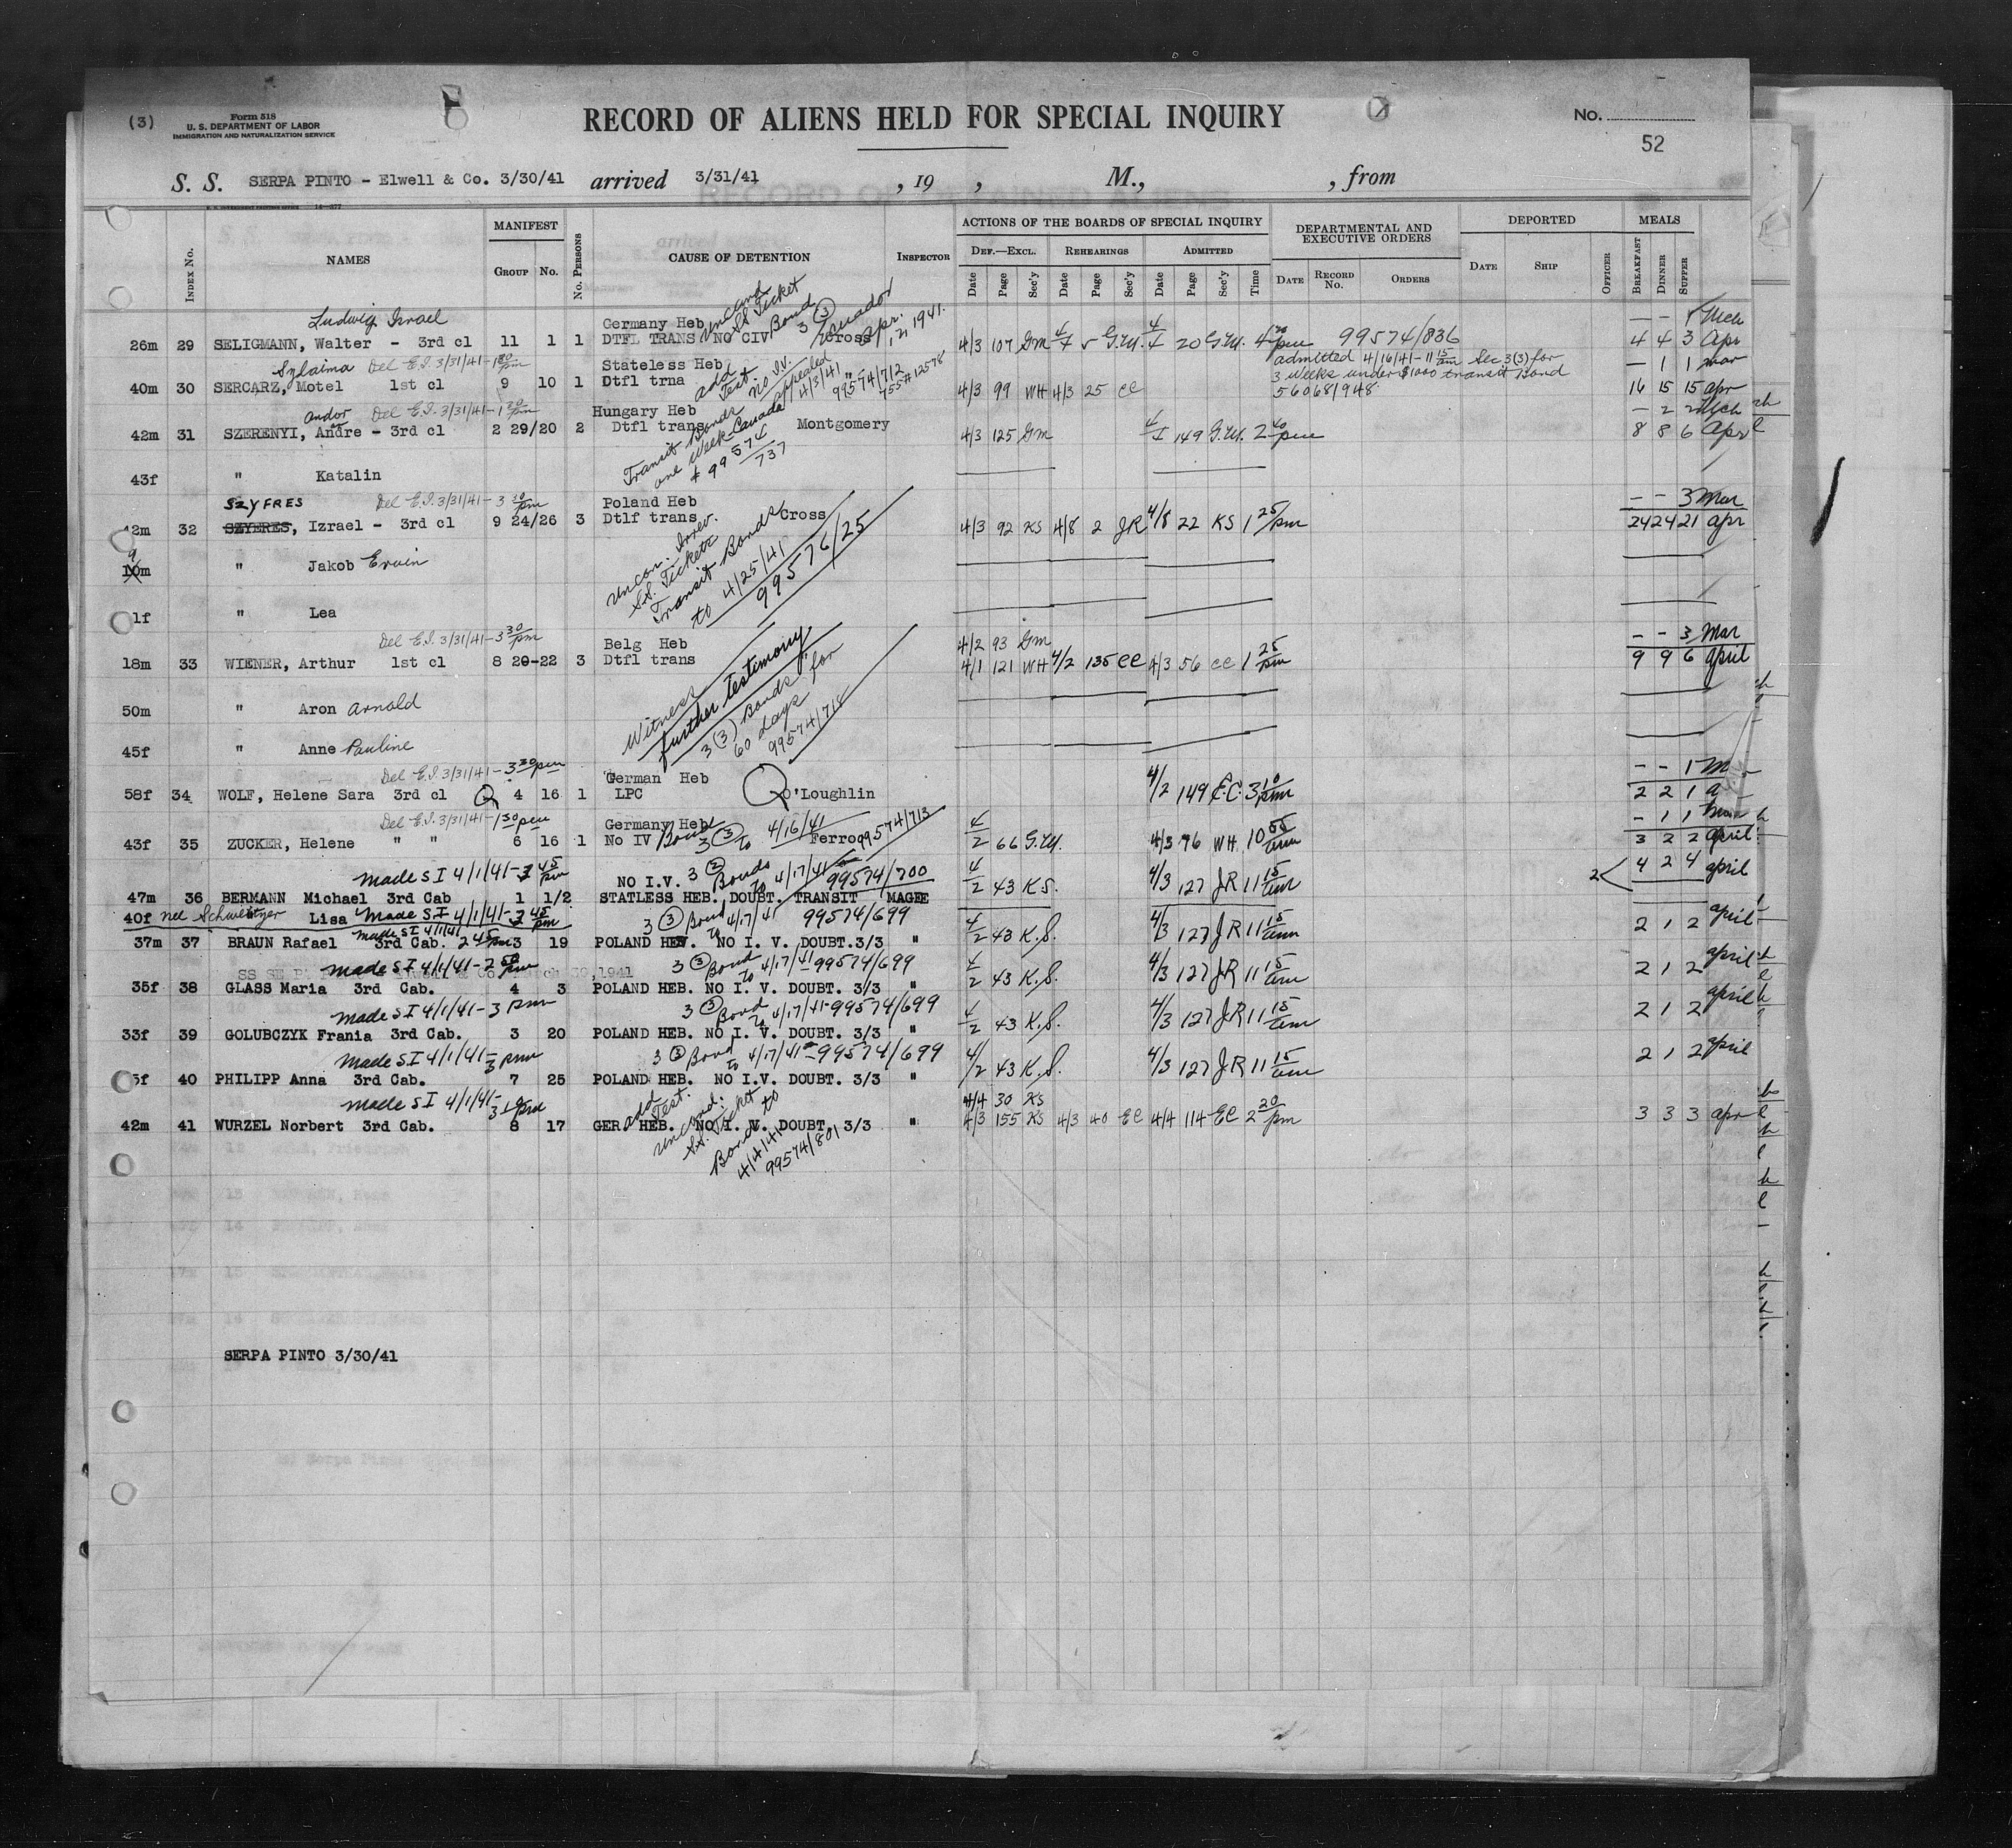 (3)
Form 518
U. S. DEPARTMENT OF LABOR
IMMIGRATION AND NATURALIZATION SERVICE
RECORD OF ALIENS HELD FOR SPECIAL INQUIRY
No.
52
S. S. SERPA PINTO - Elwell & Co. 3/30/41 arrived 3/31/41 , 19 , M., , from
INDEX No. NAMES MANIFEST GROUP NO. No. PERSONS CAUSE OF DETENTION INSPECTOR
ACTIONS OF THE BOARDS OF SPECIAL INQUIRY
DEF.—EXCL. REHEARINGS ADMITTED
Date Page Sec'y Date Page Sec'y Date Page Sec'y Time
DEPARTMENTAL AND EXECUTIVE ORDERS
DATE RECORD No. ORDERS
DEPORTED
DATE SHIP OFFICER
MEALS
BREAKFAST DINNER SUPPER
Ludwig Israel
Germany Heb Uncond SS Ticket Bond 3 (3) Ecuador Apr. 21 1941.
26m 29 SELIGMANN, Walter - 3rd cl 11 1 1 DTFL TRANS NO CIV Cross 4/3 107 GM 5 G.M. 20 G.M. pm 99574/836 4 4 3 Apr
Del E.I. 3/31/41-1 30 pm
Stateless Heb add Test. no IV. appealed 4/3/41 99574/712
admitted 4/16/41-11 15 am Sec 3(3) for
3 weeks under $1000 transit Bond
40m 30 SERCARZ, Motel 1st cl 9 10 1 Dtfl trna " 4/3 99 WH 4/3 25 CC 56068/948 16 15 15 apr
Andor Del E.I. 3/31/41-1 30 pm
Hungary Heb
42m 31 SZERENYI, Andre - 3rd cl 2 29/20 2 Dtfl trans Montgomery 4/3 125 GM 149 G.M. 2 40 pm 8 8 6 Apr
Transit Bonds one week Canada # 99574/737
43f " Katalin
SZYFRES Del E.I. 3/31/41-3 30 pm
Poland Heb - - 3 Mar
42m 32 SZYERES, Izrael - 3rd cl 9 24/26 3 Dtlf trans Cross 4/3 92 KS 4/8 2 JR 4/8 22 KS 1 25 pm 24 24 21 apr
Uncon. Irrev. S.S. Tickets Transit Bonds to 4/25/41 99576/25
9
10m " Jakob Erwin
1f " Lea
Del E.I. 3/31/41-3 30 pm
Belg Heb 4/2 93 GM - - 3 Mar
18m 33 WIENER, Arthur 1st cl 8 20-22 3 Dtfl trans 4/1 121 WH 4/2 135 CC 4/3 56 CC 1 25 pm 9 9 6 april
Witness further testimony 3 (3) Bonds for 60 days 99574/718
50m " Aron Arnold
45f " Anne Pauline
Del E.I. 3/31/41-3 30 pm
German Heb
58f 34 WOLF, Helene Sara 3rd cl 4 16 1 LPC O'Loughlin 4/2 149 E.C. 3 10 pm 2 2 1 a
Del E.I. 3/31/41-1 30 pm
Germany Heb Bond 3 (3) to 4/16/41 99574/713
43f 35 ZUCKER, Helene " " 6 16 1 No IV Ferro 4/2 66 G.M. 4/3 76 WH 10 55 am 3 2 2 april
made SI 4/1/41- 45 pm
NO I.V. 3 Bonds to 4/17/41 99574/700
47m 36 BERMANN Michael 3rd Cab 1 1/2 STATLESS HEB. DOUBT. TRANSIT MAGEE 4/2 43 K.S. 4/3 127 JR 11 15 am 4 2 4 april
40f nee Lisa Made SI 4/1/41- 45 pm 3 (3) Bond to 4/17/41 99574/699
made SI 4/1/41
37m 37 BRAUN Rafael 3rd Cab. 2 45 pm 3 19 POLAND HEB. NO I. V. DOUBT. 3/3 " 4/2 43 K.S. 4/3 127 JR 11 15 am 2 1 2 april
made SI 4/1/41-2 50 pm 3 (3) Bond to 4/17/41-99574/699
35f 38 GLASS Maria 3rd Cab. 4 3 POLAND HEB. NO I. V. DOUBT. 3/3 " 4/2 43 K.S. 4/3 127 JR 11 15 am 2 1 2 april
made SI 4/1/41-3 pm 3 (3) Bond to 4/17/41-99574/699
33f 39 GOLUBCZYK Frania 3rd Cab. 3 20 POLAND HEB. NO I. V. DOUBT. 3/3 " 4/2 43 K.S. 4/3 127 JR 11 15 am 2 1 2 april
Made SI 4/1/41-3 pm 3 (3) Bond to 4/17/41-99574/699
5f 40 PHILIPP Anna 3rd Cab. 7 25 POLAND HEB. NO I.V. DOUBT. 3/3 " 4/2 43 K.S. 4/3 127 JR 11 15 am 2 1 2 april
made SI 4/1/41- 3 10 pm 4/4 30 KS
42m 41 WURZEL Norbert 3rd Cab. 8 17 GER HEB. NO I. V. DOUBT. 3/3 " 4/3 155 KS 4/3 40 EC 4/4 114 EC 2 20 pm 3 3 3 apr
add Test. Uncond. S.S. Ticket Bond to 4/4/41 99574/801
SERPA PINTO 3/30/41